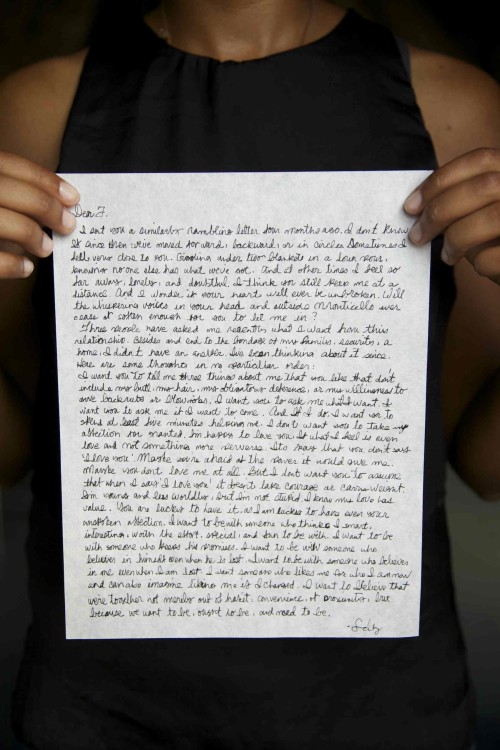 Dear F.
I sent you a similarly rambling letter four months ago. I don't know
if since then we've moved forward, backward, or in circles. Sometimes I
feel very close to you. Giggling under two blankets in a town house,
knowing no one else has what we've got. And at other times I feel so
far away, lonely, and doubtful. I think you still keep me at a
distance. And I wonder if your heart will ever be unbroken. Will
the whispering voices in your head and outside Monticello ever
cease or soften enough for you to let me in?
Three people have asked me recently what I want from this
relationship. Besides and end to the bondage of my family, security, a
home, I didn't have an answer. I've been thinking about it since.
Here are some thoughts in no particular order:
I want you to tell me three things about me that you like that don't
include my butt, my hair, my obligatory deference, or my willingness to
give backrubs or I want you to ask me what I want. I
want you to ask me if I want to come. And if I do, I want you to
spend at least five minutes helping me. I don't want you to take my
affection for granted. I'm happy to love you if what I feel is even
love and not something more perverse. It's okay that you don't say
'I love you'. Maybe you're afraid of the power it would give me.
Maybe you don't love me at all. But I don't want you to assume
that when I say 'I love you' it doesn't take courage or carry weight.
I'm young and less worldly, but I'm not stupid. I know my love has
value. You are lucky to have it, as I am lucky to have even your
unspoken affection. I want to be with someone who thinks I'm smart,
interesting, worth the effort, special, and fun to be with. I want to be
with someone who keeps his promises. I want to be with someone who
believes in himself even when he is lost. I want to be with someone who believes
in me even when I am lost. I want someone who likes me for who I am now
and can also imagine liking me if I changed. I want to believe that
we're together not merely out of habit, convenience, or proximity, but
because we want to be, ought to be, and need to be.
-Sally